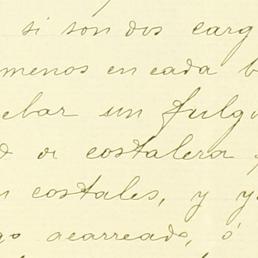 si son dos carg
menos en cada b
ebar un fulgu
d de costalera
costales, y y
go acarreado, ó